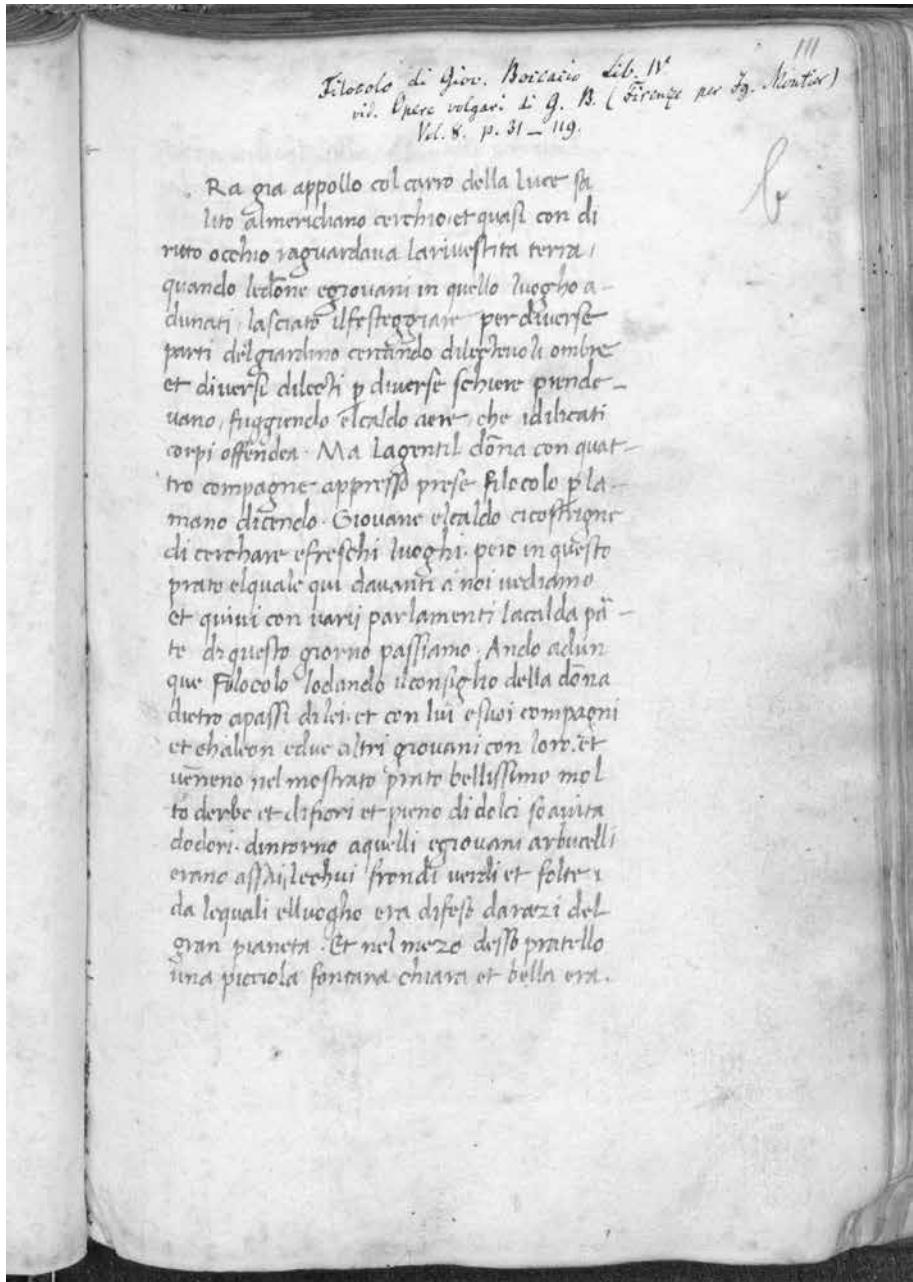 111
Filocolo di Giov. Boccacio Lib. IV.
vid. Opere volgari di G. B. (Firenze per Ig. Moutier)
Vol. 8. p. 31 _ 119.
b
Ra gia appollo col carro della luce sa
lito almeridiano cerchio et quasi con di
ritto occhio raguardava larivestita terra,
quando ledōne egiovani in quello luogho a-
dunati, lasciato ilfesteggiare per diverse
parti delgiardino cercando dilectevoli ombre
et diversi dilecti ꝑ diverse schiere prende-
vano, fuggiendo elcaldo aere, che idilicati
corpi offendea. Ma lagentil dōna con quat-
tro compagne appresso prese filocolo ꝑ la-
mano dicendo. Giovane elcaldo cicostrigne
di cerchare efreschi luoghi. pero in questo
prato elquale qui davanti a noi vediamo
et quivi con varij parlamenti lacalda pā-
te di questo giorno passiamo. Ando adun
que Filocolo lodando ilconsiglio della dōna
dietro apassi dilei. et con lui esuoi compagni
et chaleon edue altri giovani con loro. et
vēneno nel mostrato prato bellissimo mol
to derbe et difiori et pieno di dolci soavita
dodori. dintorno aquelli egiovani arbucelli
erano assai, lechui frondi verdi et folte,
da lequali elluogho era difeso darazi del
gran pianeta. Et nel mezo desso pratello
una picciola fontana chiara et bella era.